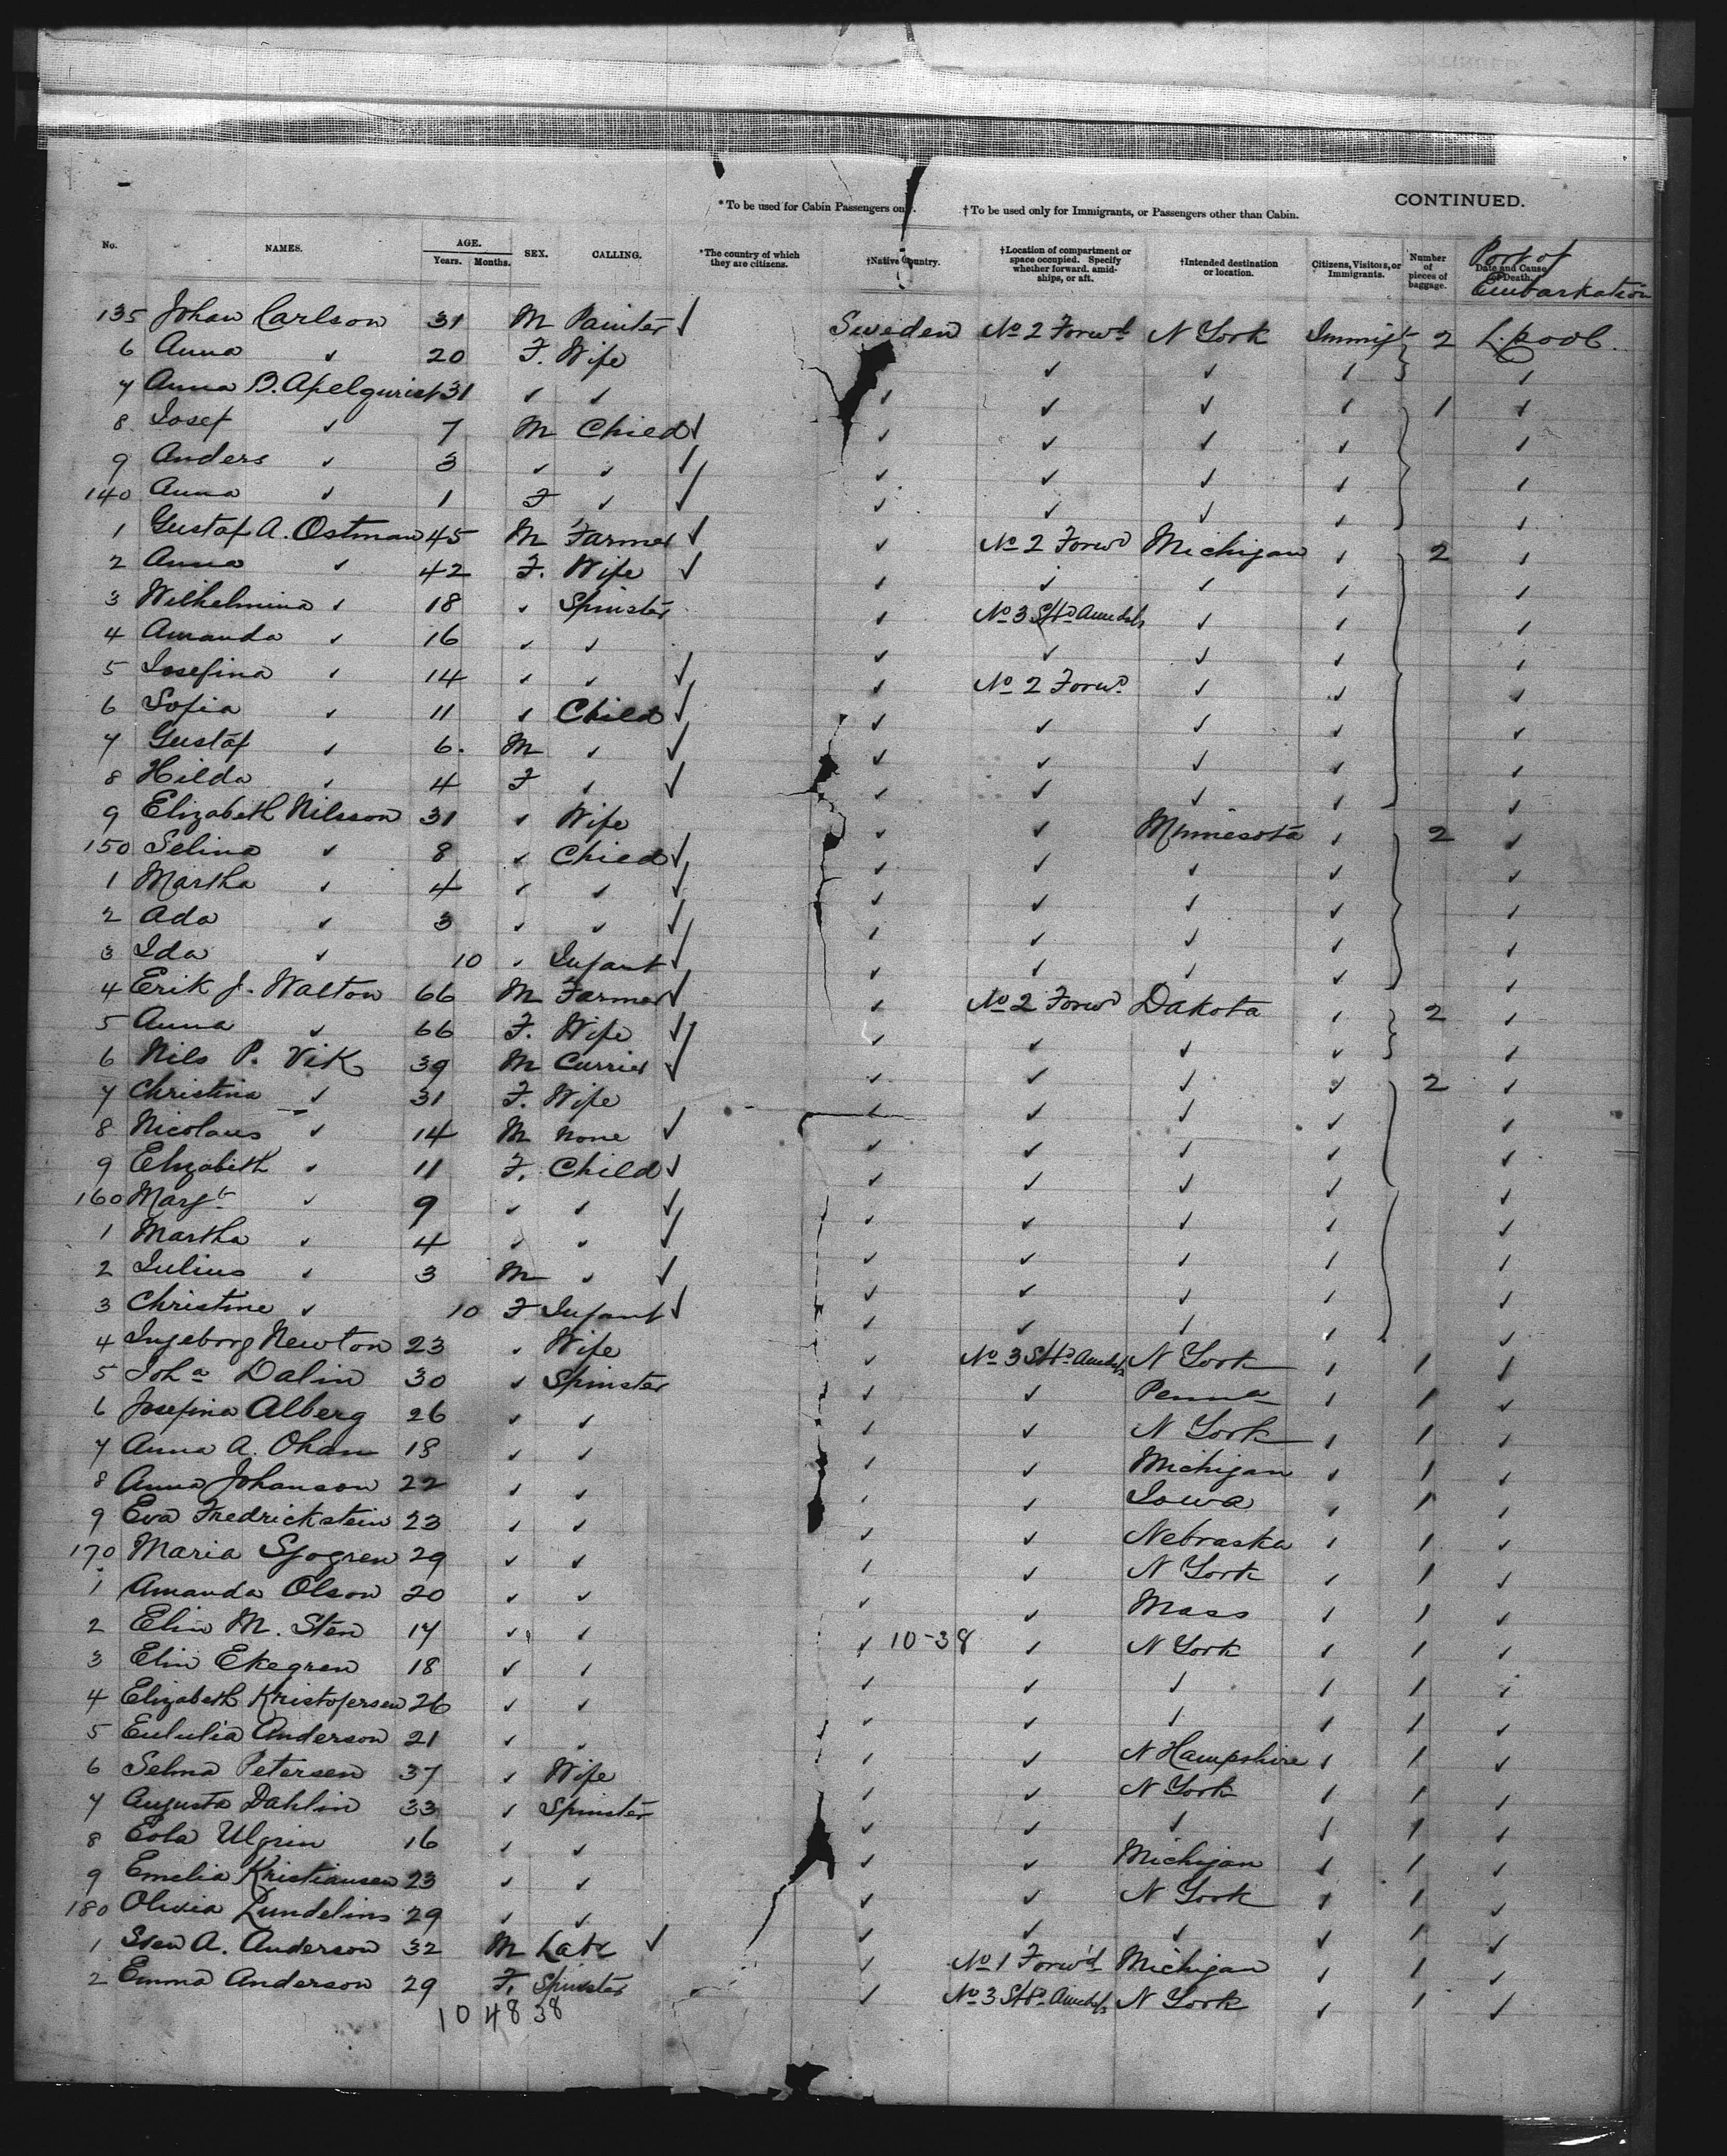 CONTINUED.
* To be used for Cabin Passengers only. † To be used only for Immigrants, or Passengers other than Cabin.
No. NAMES. AGE. Years. Months. SEX. CALLING. *The country of which they are citizens. †Native Country. †Location of compartment or space occupied. Specify whether forward, amidships, or aft. †Intended destination or location. Citizens, Visitors, or Immigrants. Number of pieces of baggage. Date and Cause of Death. Port of Embarkation
135 Johan Carlson 31 M Painter ✓ Sweden No 2 Forwd N York Immigt 2 L.pool.
6 Anna ✓ 20 F. Wife ✓ ✓ ✓ ✓
7 Anna B. Apelqurist 31 ✓ ✓ ✓ ✓ ✓ ✓ 1 ✓
8 Iosef ✓ 7 M Chied ✓ ✓ ✓ ✓ ✓ ✓
9 Anders ✓ 3 ✓ ✓ ✓ ✓ ✓ ✓ ✓ ✓
140 Anna ✓ 1 F ✓ ✓ ✓ ✓ ✓ ✓ ✓
1 Gustaf A. Ostman 45 M Farmer ✓ ✓ No 2 Forwd Michigan ✓ 2 ✓
2 Anna ✓ 42 F. Wife ✓ ✓ ✓ ✓ ✓ ✓
3 Wilhelmina ✓ 18 ✓ Spinster ✓ No 3 Sttd Amdsh ✓ ✓ ✓
4 Amanda ✓ 16 ✓ ✓ ✓ ✓ ✓ ✓ ✓
5 Iosefina ✓ 14 ✓ ✓ ✓ ✓ No 2 Forwd ✓ ✓ ✓
6 Sofia ✓ 11 ✓ Child ✓ ✓ ✓ ✓ ✓ ✓
7 Gustaf ✓ 6. M ✓ ✓ ✓ ✓ ✓ ✓ ✓
8 Hilda ✓ 4 F ✓ ✓ ✓ ✓ ✓ ✓ ✓
9 Elizabeth Nilsson 31 ✓ Wife ✓ ✓ Minnesota ✓ 2 ✓
150 Selina ✓ 8 ✓ Chied ✓ ✓ ✓ ✓ ✓ ✓
1 Martha ✓ 4 ✓ ✓ ✓ ✓ ✓ ✓ ✓ ✓
2 Ada ✓ 3 ✓ ✓ ✓ ✓ ✓ ✓ ✓ ✓
3 Ida ✓ 10 ✓ Infant ✓ ✓ ✓ ✓ ✓ ✓
4 Erik J. Walton 66 M Farmer ✓ ✓ No 2 Forwd Dakota ✓ 2 ✓
5 Anna ✓ 66 F. Wife ✓ ✓ ✓ ✓ ✓ ✓
6 Nils P. Vik 39 M Currier ✓ ✓ ✓ ✓ ✓ 2 ✓
7 Christina ✓ 31 F. Wife ✓ ✓ ✓ ✓ ✓
8 Nicolaus ✓ 14 M none ✓ ✓ ✓ ✓ ✓ ✓
9 Elizabeth ✓ 11 F. Child ✓ ✓ ✓ ✓ ✓ ✓
160 Margt ✓ 9 ✓ ✓ ✓ ✓ ✓ ✓ ✓ ✓
1 Martha ✓ 4 ✓ ✓ ✓ ✓ ✓ ✓ ✓ ✓
2 Iulius ✓ 3 M ✓ ✓ ✓ ✓ ✓ ✓ ✓
3 Christine ✓ 10 F Infant ✓ ✓ ✓ ✓ ✓ ✓
4 Ingeborg Newton 23 ✓ Wife ✓ No 3 Sttd Amdsh N York ✓ 1 ✓
5 Joha Dalin 30 ✓ Spinster ✓ ✓ Penna ✓ 1 ✓
6 Josefina Alberg 26 ✓ ✓ ✓ ✓ N York ✓ 1 ✓
7 Anna A. Ohan 18 ✓ ✓ ✓ ✓ Michigan ✓ 1 ✓
8 Anna Johanson 22 ✓ ✓ ✓ ✓ Iowa ✓ 1 ✓
9 Eva Fredrickstein 23 ✓ ✓ ✓ ✓ Nebraska ✓ 1 ✓
170 Maria Sjogren 29 ✓ ✓ ✓ ✓ N York ✓ 1 ✓
1 Amanda Olson 20 ✓ ✓ ✓ ✓ Mass ✓ 1 ✓
2 Elin M. Sten 17 ✓ ✓ ✓ 10-38 ✓ N York ✓ 1 ✓
3 Elin Ekegren 18 ✓ ✓ ✓ ✓ ✓ ✓ 1 ✓
4 Elizabeth Kristofersen 26 ✓ ✓ ✓ ✓ ✓ ✓ 1 ✓
5 Eululia Anderson 21 ✓ ✓ ✓ ✓ N Hampshire ✓ 1 ✓
6 Selma Petersen 37 ✓ Wife ✓ ✓ N York ✓ 1 ✓
7 Augusta Dahlin 33 ✓ Spinster ✓ ✓ ✓ ✓ 1 ✓
8 Eola Ulgrin 16 ✓ ✓ ✓ ✓ Michigan ✓ 1 ✓
9 Emelia Kristiansen 23 ✓ ✓ ✓ ✓ N York ✓ 1 ✓
180 Olivia Lundelins 29 ✓ ✓ ✓ ✓ ✓ ✓ 1 ✓
1 Sven A. Anderson 32 M Labr ✓ ✓ No 1 Forw'd Michigan ✓ 1 ✓
2 Emma Anderson 29 F. Spinster ✓ No 3 Sttd Amdsh N York ✓ 1 ✓
10 48 38